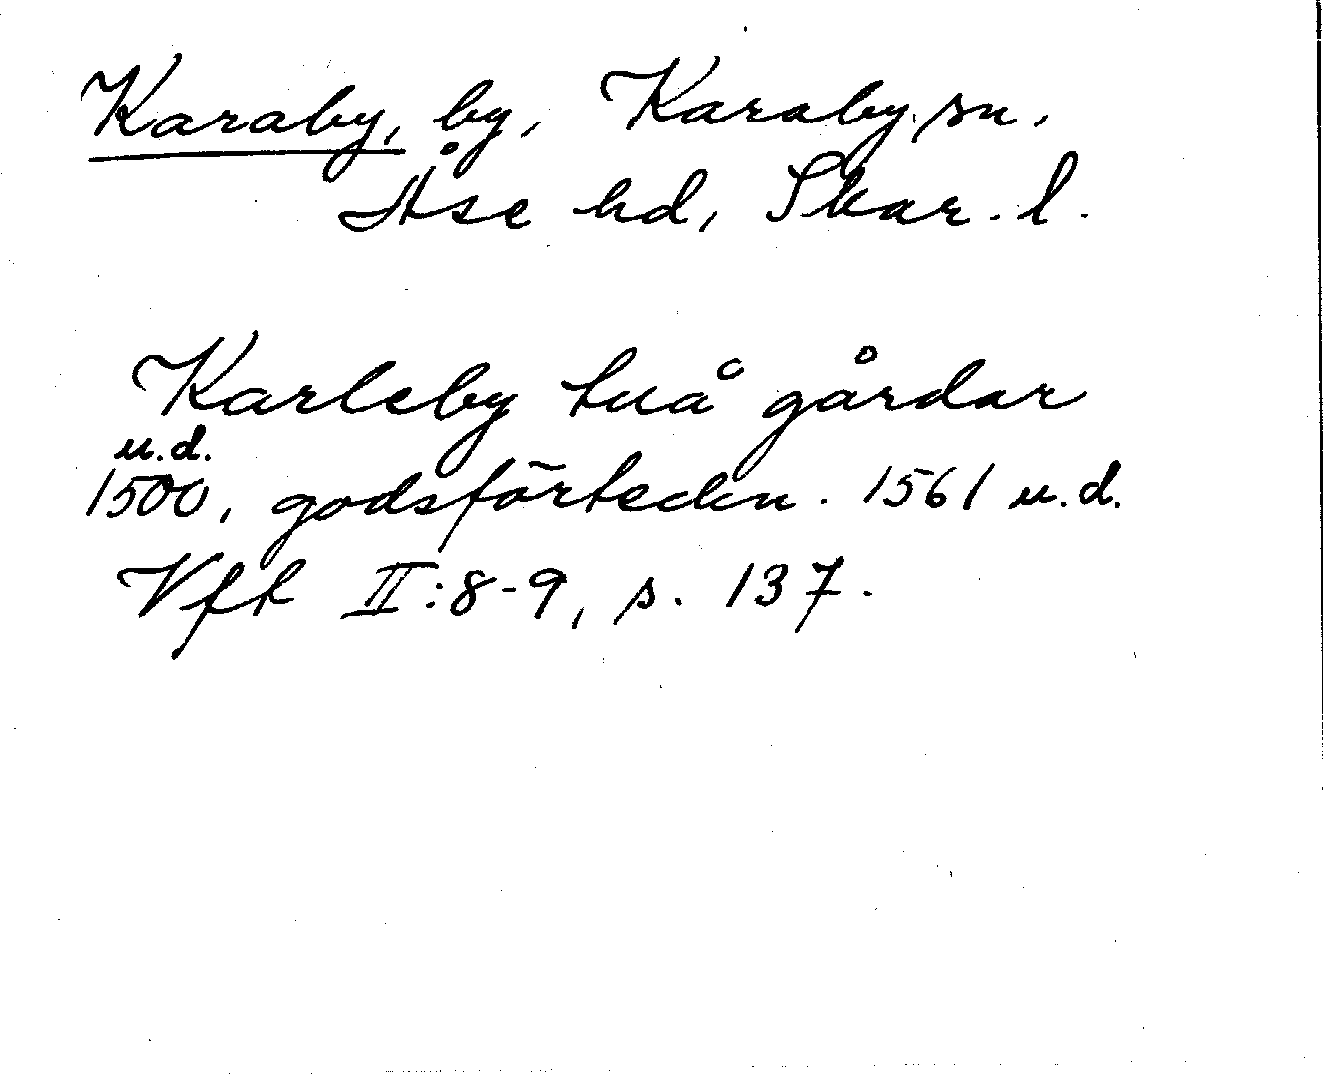 Karaby, by, Karaby sn.
Åse hd, Skar. l.
Karleby två gårdar
u.d.
1500, godsförteckn. 1561 u.d.
Vft II:8-9, s. 137.